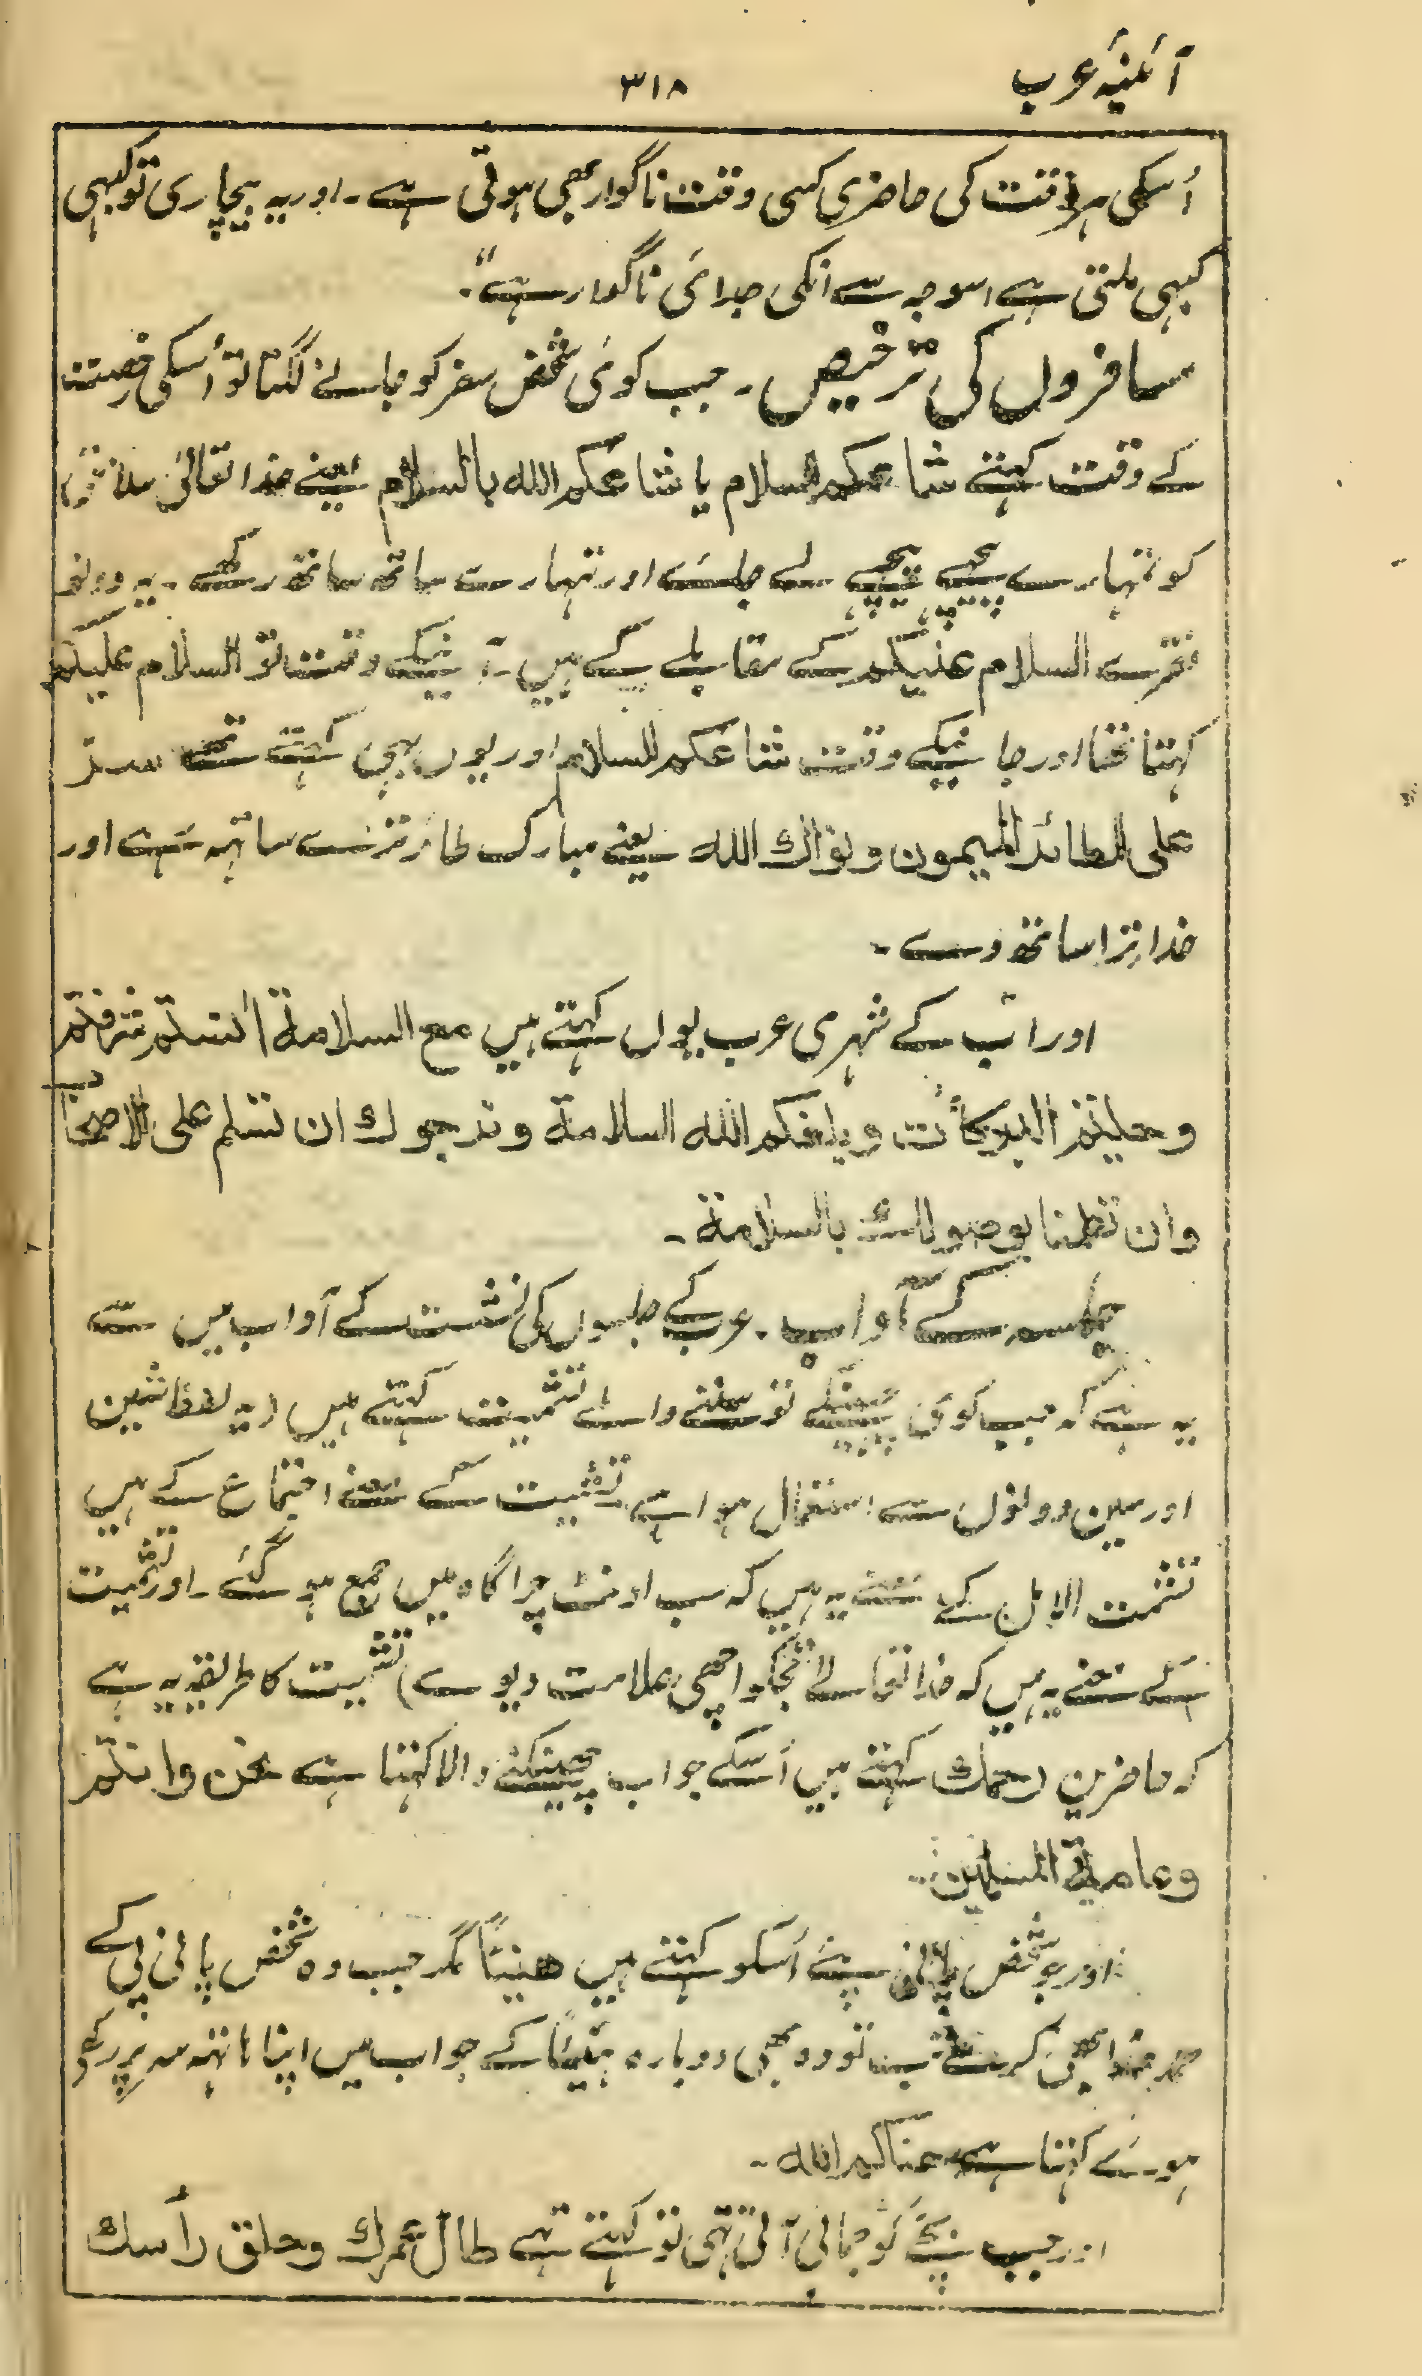 آئینۂ عرب ۳۱۸
اُسکی ہروقت کی حاضری کسی وقت ناگوار بھی ہوتی ہے ۔ اور یہ بیچاری تو کبہی
کبہی ملتی ہے اسوجہ سے انکی جدائی ناگوار ہے"۔
مسافروں کی ترخیص ۔ جب کوئی شخص سفر کو جانے لگتا تو اُسکی رخصت
کے وقت کہتے شاعکم السلام یا شاعکم الله بالسلام یعنے خدا تعالیٰ سلامتی
کو تمہارے پیچہے پیچہے لے جائے اور تمہارے ساتھ ساتھ رکھے ۔ یہ دونو
فقرے السلام علیکم کے مقابلے کے ہیں ۔ آنیکے وقت تو السلام علیکم
کہتا تھا اور جانیکے وقت شاعکم السلام اور یوں بھی کہتے تھے سر
علی الطائر المیمون ونواك الله یعنے مبارک طائر تیرے ساتہہ رہے اور
خدا تیرا ساتھ دے ۔
اور اب کے شہری عرب یوں کہتے ہیں مع السلامة انستم شرفتم
وحلیتم البركات وبلغكم الله السلامة ونرجوك ان تسلم على الاصحاب
وان تطمنا بوصولك بالسلامة ۔
جلسہ کے آداب ۔ عرب کے جلسوں کی نشست کے آداب میں سے
یہ ہے کہ جب کوئی چھینکے تو سننے والے تشمیت کہتے ہیں (یہ لفظ شین
اور سین دونوں سے استعمال ہوا ہے تشمیت کے معنے اجتماع کے ہیں
تشمت الابل کے معنے یہ ہیں کہ سب اونٹ چراگاہ میں جمع ہو گئے ۔ اور تسمیت
کے معنے یہ ہیں کہ خدا تعالےٰ تجکو اچھی علامت دیوے) تشمیت کا طریقہ یہ ہے
کہ حاضرین رحمك کہتے ہیں اُسکے جواب چھینکنے والا کہتا ہے نحن وانتم
وعامة المسلمین ۔
اور جو شخص پانی پئے اُسکو کہتے ہیں هنیئاً مگر جب وہ شخص پانی پی کے
حمد خدا بھی کرے تب تو وہ بھی دوبارہ ہنیئاً کے جواب میں اپنا ہاتہہ سر پر رکھے
ہوئے کہتا ہے هناكم الله ۔
اور جب بچے کو جمائی آتی تھی تو کہتے تھے طال عمرك وحلق رأسك